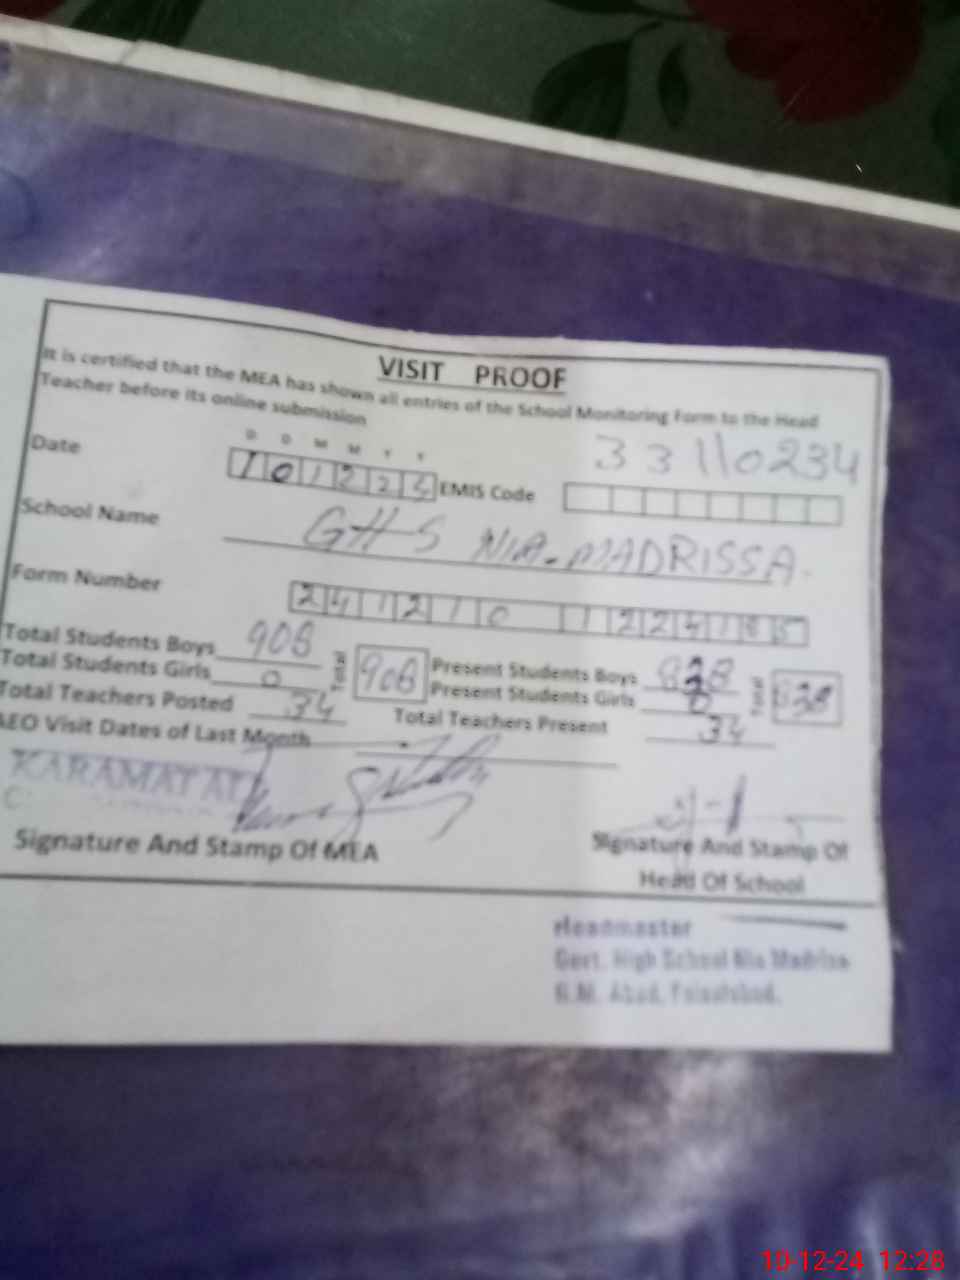 VISIT PROOF
It is certified that the MEA has shown all entries of the School Monitoring Form to the Head
Teacher before its online submission
D D M M Y Y
Date 101224 EMIS Code 33110234
School Name GHS NIA-MADRISSA.
Form Number
Total Students Boys 908 Total 908 Present Students Boys 828 Total 828
Total Students Girls 0 Present Students Girls 0
Total Teachers Posted 34 Total Teachers Present 34
AEO Visit Dates of Last Month
KARAMAT ALI
Signature And Stamp Of MEA
Signature And Stamp Of
Head Of School
Headmaster
Govt. High School Nia Madrisa
G.M. Abad, Faisalabad.
10-12-24 12:28